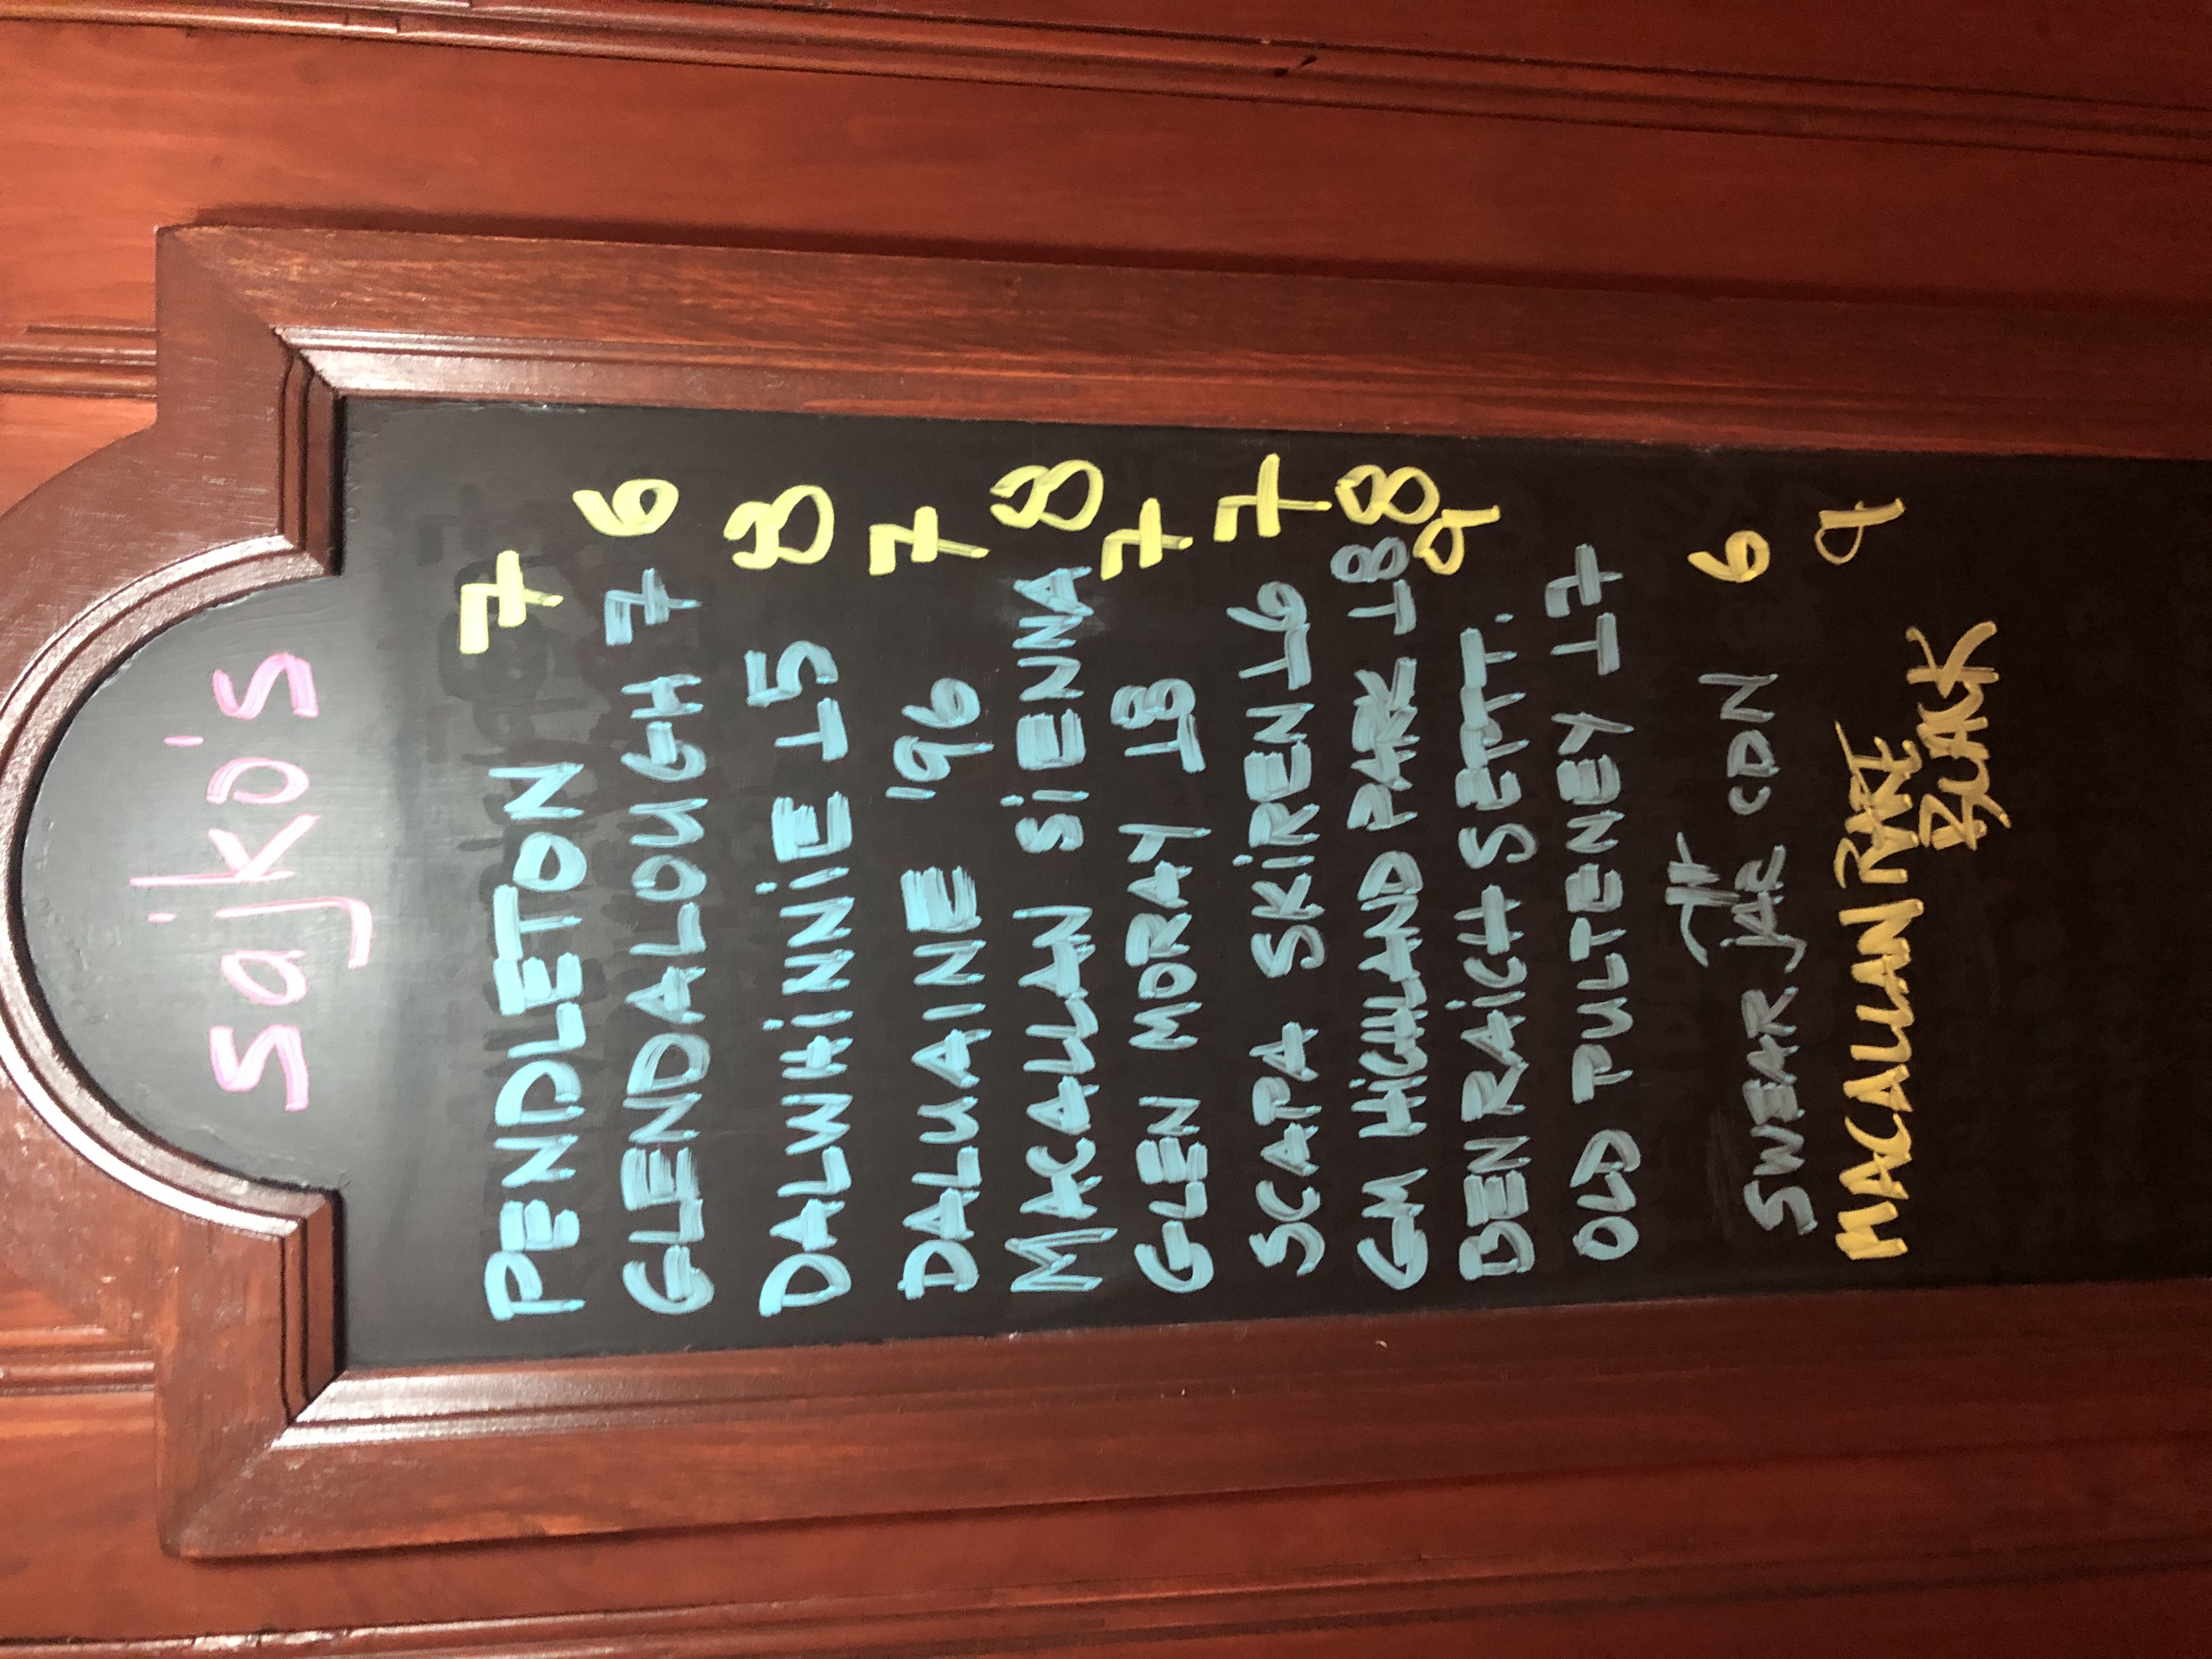 sajko's
PENDLETON 7
GLENDALOUGH 7 6
DALWHiNNiE 15 8
DALUAINE '96 7
MACALLAN SiENNA 8
GLEN MORAY 18 7
SCAPA SKiREN 16 7
GM HiGHLAND PARK 18 8
BENRAiCH SEPTT. 9
OLD PULTENEY 17
SWEAR jAR CDN 6
MACALLAN RARE 9
BLACK